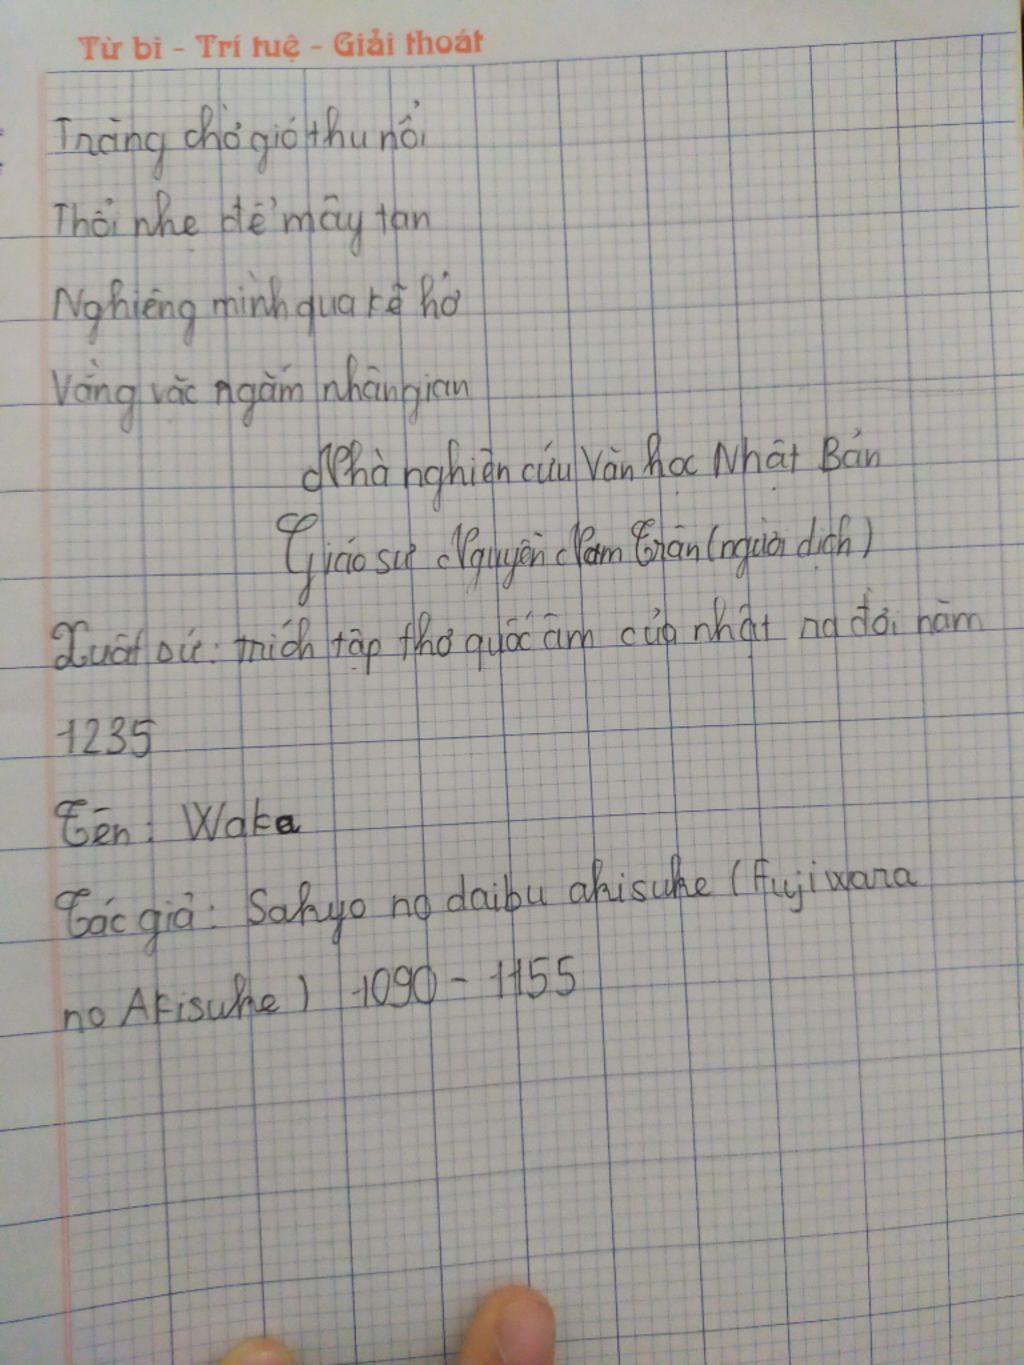 Từ bi - Trí tuệ - Giải thoát
Trăng chờ gió thu nổi
Thổi nhẹ để mây tan
Nghiêng mình qua kẽ hở
Vằng vặc ngắm nhân gian
Nhà nghiên cứu Văn học Nhật Bản
Giáo sư Nguyễn Nam Trân (người dịch)
Xuất sứ: trích tập thơ quốc âm của nhật ra đời năm
1235
Tên: Waka
Tác giả: Sakyo no daibu akisuke (Fujiwara
no Akisuke) 1090 - 1155